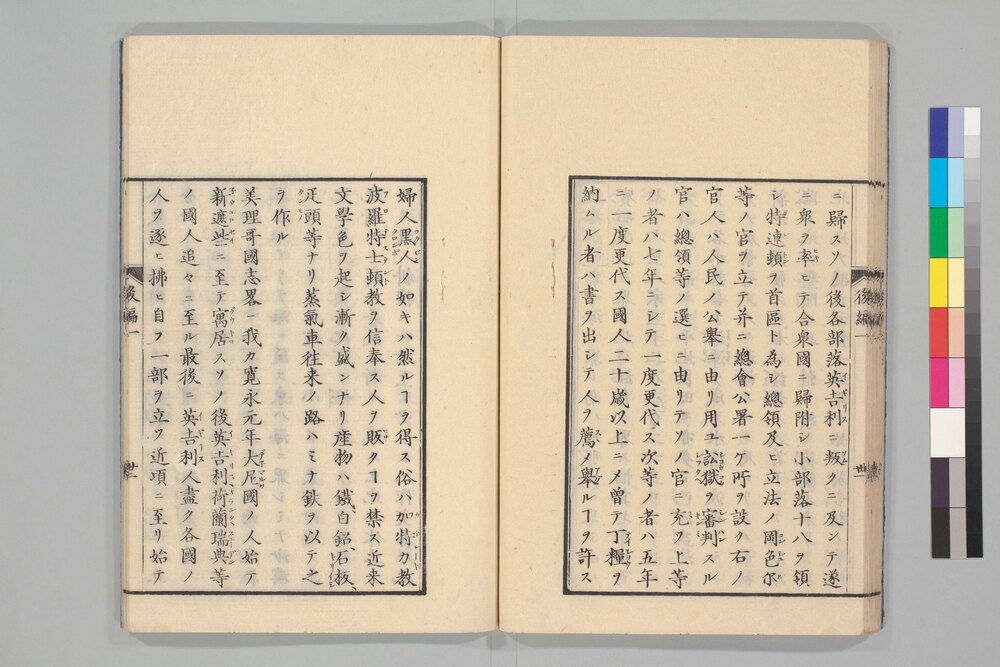 ニ歸スソノ後各部落英吉利ニ叛クニ及ンテ遂
ニ衆ヲ率ヒテ合衆國ニ歸附シ小部落十八ヲ領
シ特連頓ヲ首區ト為シ總領及ヒ立法ノ岡色尔
等ノ官ヲ立テ并ニ總會公署一ケ所ヲ設ク右ノ
官人ハ人民ノ公舉ニ由リ用ユ訟獄ヲ審判スル
官ハ總領等ノ選ヒニ由リテソノ官ニ充ツ上等
ノ者ハ七年ニシテ一度更代ス次等ノ者ハ五年
ニ一度更代ス國人二十歳以上ニメ曾テ丁糧ヲ
納ムル者ハ書ヲ出シテ人ヲ薦メ舉ルヿヲ許ス
後編一
廿一
婦人黒人ノ如キハ然ルヿヲ得ス俗ハ加特力教
波羅特士頓教ヲ信奉ス人ヲ販クヿヲ禁ス近来
文學色ヲ起シ漸ク盛ンナリ産物ハ鐵、白鉛、石板、
疋頭等ナリ蒸氣車往来ノ路ハミナ鉄ヲ以テ之
ヲ作ル
美理哥國志畧ニ我カ寛永元年大尼國ノ人始テ
新遮些ニ至テ寓居スソノ後英吉利荷蘭瑞典等
ノ國人追々ニ至ル最後ニ英吉利人盡ク各國ノ
人ヲ逐ヒ拂ヒ自フ一部ヲ立ツ近頃ニ至リ始テ
後編一
廿二